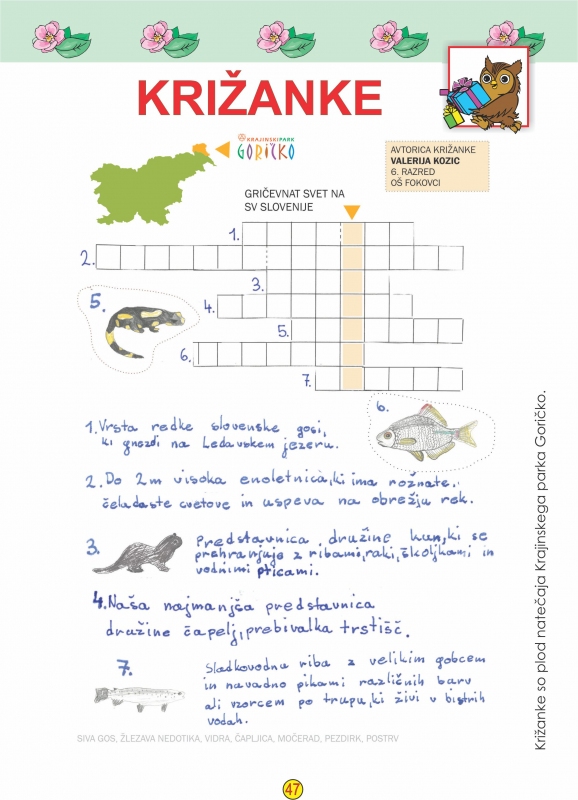 KRIŽANKE
KRAJINSKI PARK
GORIČKO
AVTORICA KRIŽANKE
VALERIJA KOZIC
6. RAZRED
OŠ FOKOVCI
GRIČEVNAT SVET NA
SV SLOVENIJE
1.
2.
3.
4.
5.
5.
6.
7.
6.
1. Vrsta redke slovenske gosi,
ki gnezdi na Ledavskem jezeru.
2. Do 2m visoka enoletnica, ki ima rožnate,
čeladaste cvetove in uspeva na obrežju rek.
3. Predstavnica družine kun, ki se
prehranjuje z ribami, raki, školjkami in
vodnimi pticami.
4. Naša najmanjša predstavnica
družine čapelj, prebivalka trstišč.
7. Sladkovodna riba z velikim gobcem
in navadno pikami različnih barv
ali vzorcem po trupu, ki živi v bistrih
vodah.
SIVA GOS, ŽLEZAVA NEDOTIKA, VIDRA, ČAPLJICA, MOČERAD, PEZDIRK, POSTRV
Križanke so plod natečaja Krajinskega parka Goričko.
47